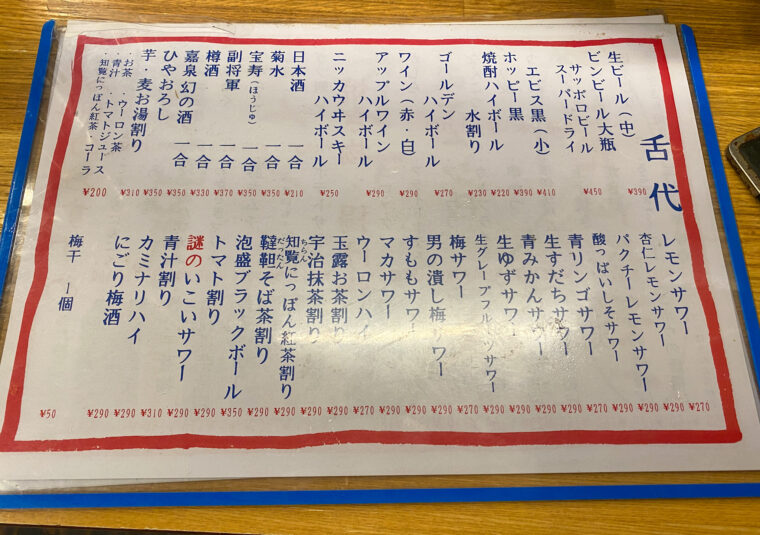 舌代
生ビール（中） ¥390
ビンビール大瓶
サッポロビール
スーパードライ ¥450
エビス黒（小） ¥410
ホッピー黒 ¥390
焼酎ハイボール ¥220
水割り ¥230
ゴールデン
ハイボール ¥270
ワイン（赤・白） ¥290
アップルワイン
ハイボール ¥290
ニッカウヰスキー
ハイボール ¥250
日本酒 一合 ¥210
菊水 一合 ¥350
宝寿（ほうじゅ） 一合 ¥350
副将軍 一合 ¥370
樽酒 一合 ¥330
嘉泉幻の酒 一合 ¥350
ひやおろし ¥350
芋・麦お湯割り ¥310
・お茶 ・ウーロン茶
・青汁 ・トマトジュース
・知覧にっぽん紅茶・コーラ ¥200
レモンサワー ¥270
杏仁レモンサワー ¥290
パクチーレモンサワー ¥290
酸っぱいしそサワー ¥290
青リンゴサワー ¥270
生すだちサワー ¥290
青みかんサワー ¥290
生ゆずサワー ¥290
生グレープフルーツサワー ¥290
梅サワー ¥270
男の潰し梅サワー ¥290
すももサワー ¥290
マカサワー ¥290
ウーロンハイ ¥270
玉露お茶割り ¥290
宇治抹茶割り ¥290
知覧にっぽん紅茶割り ¥290
ちらん
韃靼そば茶割り ¥290
だったん
泡盛ブラックボール ¥350
トマト割り ¥290
謎のいこいサワー ¥290
青汁割り ¥310
カミナリハイ ¥290
にごり梅酒 ¥290
梅干 一個 ¥50